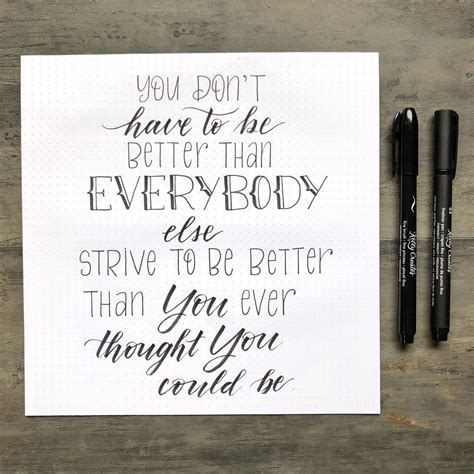 YOU DON'T
have to be
BETTER THAN
EVERYBODY
else
STRIVE TO BE BETTER
THAN You EVER
thought You
could be
Kelly Creates
Kelly Creates